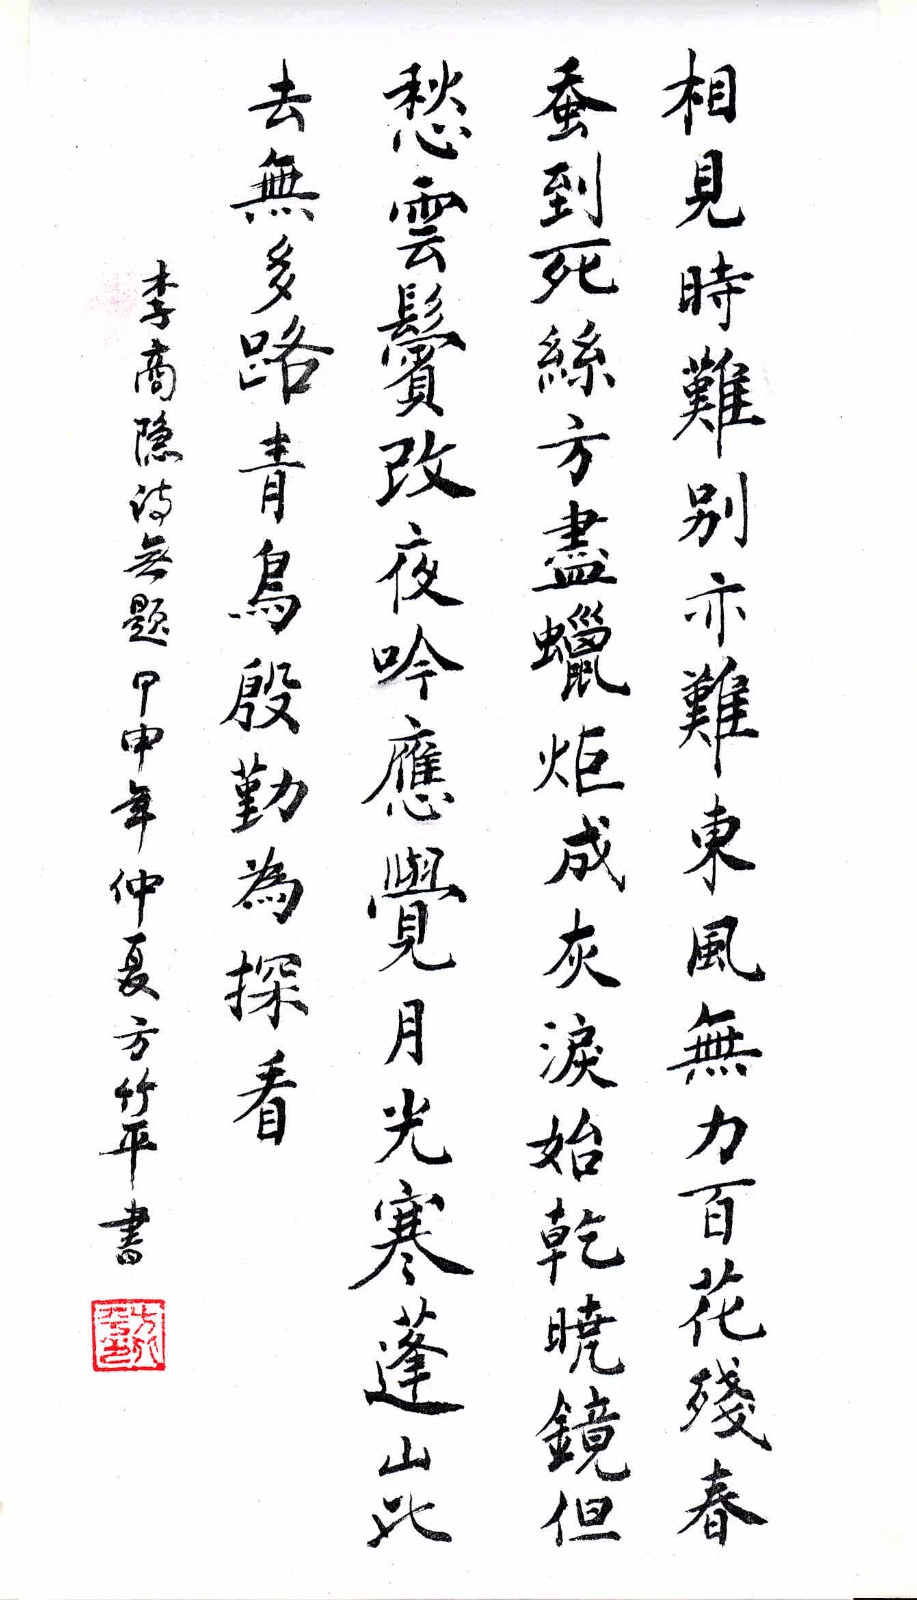 相見時難别亦難東風無力百花殘春
蚕到死絲方盡蠟炬成灰淚始乾曉鏡但
愁雲鬢改夜吟應覺月光寒蓬山此
去無多路青鳥殷勤為探看
李商隐诗無题甲申年仲夏方竹平書